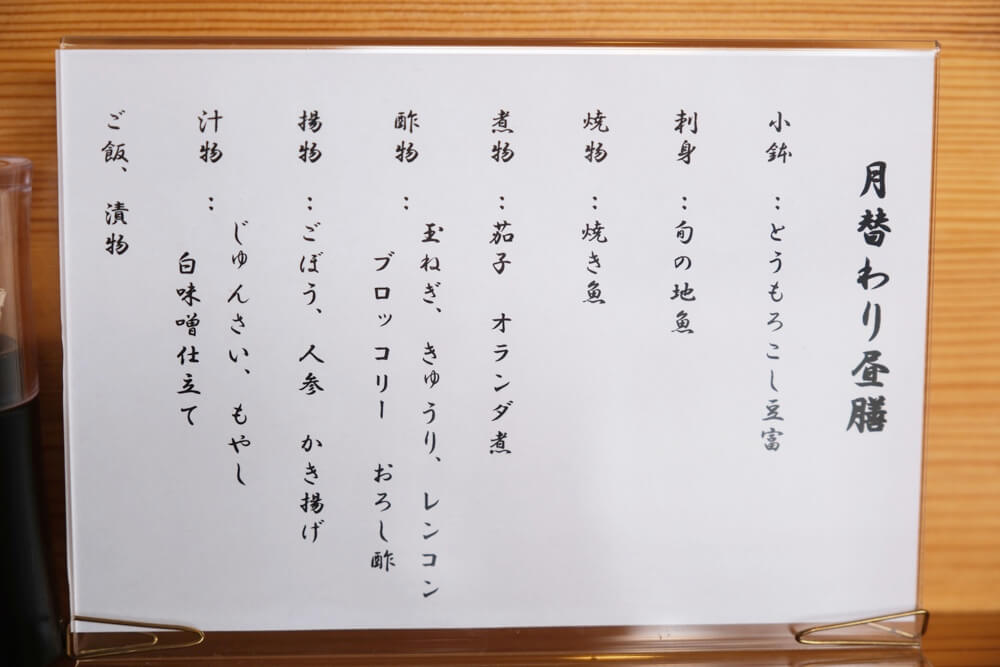 月替わり昼膳
小鉢　：とうもろこし豆富
刺身　：旬の地魚
焼物　：焼き魚
煮物　：茄子　オランダ煮
酢物　：玉ねぎ、きゅうり、レンコン
ブロッコリー　おろし酢
揚物　：ごぼう、人参　かき揚げ
汁物　：じゅんさい、もやし
白味噌仕立て
ご飯、漬物